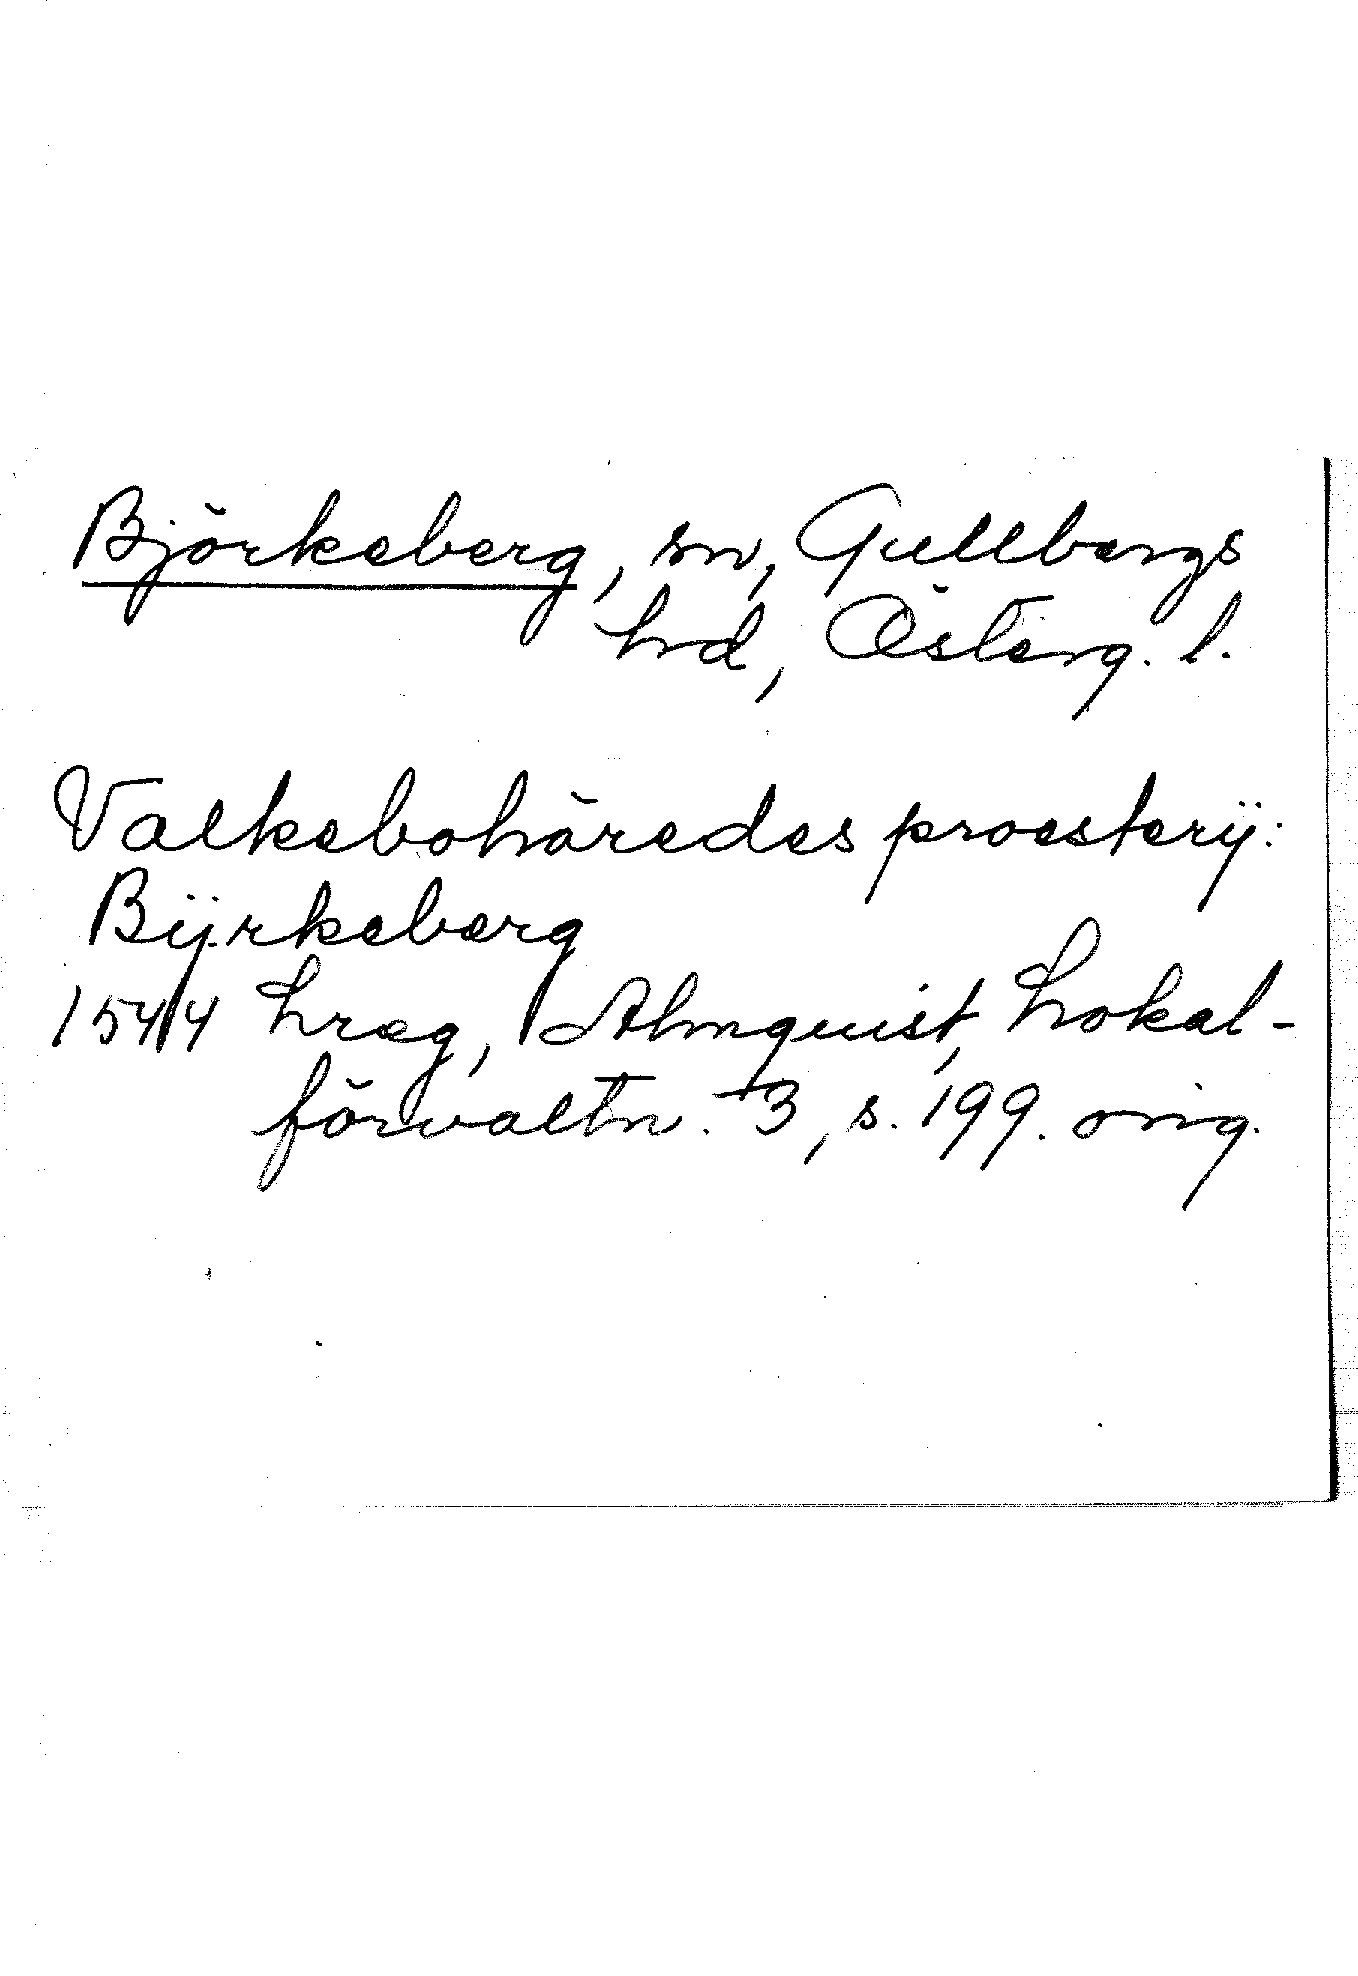 Björkeberg, sn, Gullbergs
hd, Österg. l.
Valkebohäredes proestery:
Bÿrkeberg
1544 Lreg, Almquist, Lokal-
förvaltn. 3, s. 199. orig.